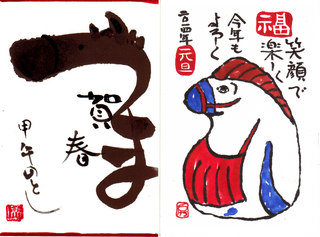 うま
賀春
甲午のとし
福
笑顔で
楽しく
今年も
よろしく
二〇一四年 元旦